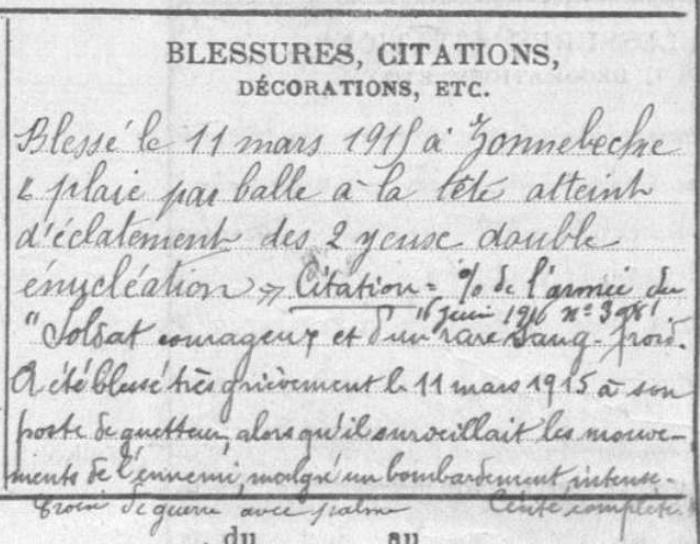 BLESSURES, CITATIONS,
DÉCORATIONS, ETC.
Blessé le 11 mars 1915 à Zonnebecke
" plaie par balle à la tête atteint
d'éclatement des 2 yeux double
énucléation » Citation = % de l'armée du
16 Juin 1916 n° 398
"Soldat courageux et d'un rare sang-froid.
A été blessé très grièvement le 11 mars 1915 à son
poste de guetteur, alors qu'il surveillait les mouve-
ments de l'ennemi, malgré un bombardement intense.
Croix de guerre avec palme Cécité complète.
du au